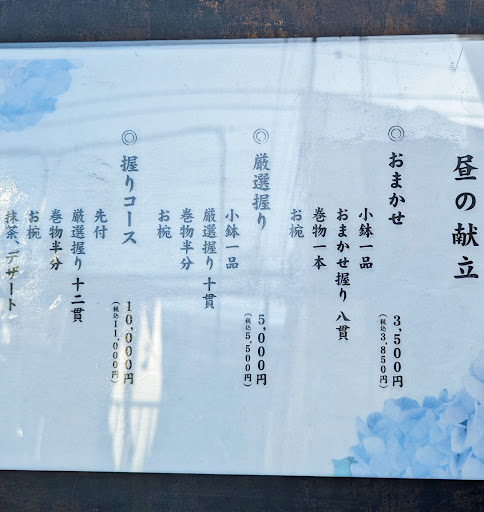 昼の献立
◎おまかせ
3,500円
(税込3,850円)
小鉢一品
おまかせ握り 八貫
巻物一本
お椀
◎厳選握り
5,000円
(税込5,500円)
小鉢一品
厳選握り十貫
巻物半分
お椀
◎握りコース
10,000円
(税込11,000円)
先付
厳選握り十二貫
巻物半分
お椀
抹茶、デザート